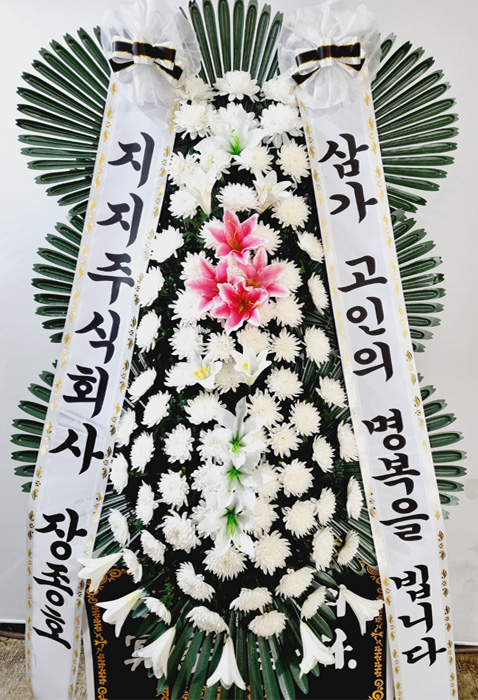 지지주식회사
삼가 고인의 명복을 빕니다